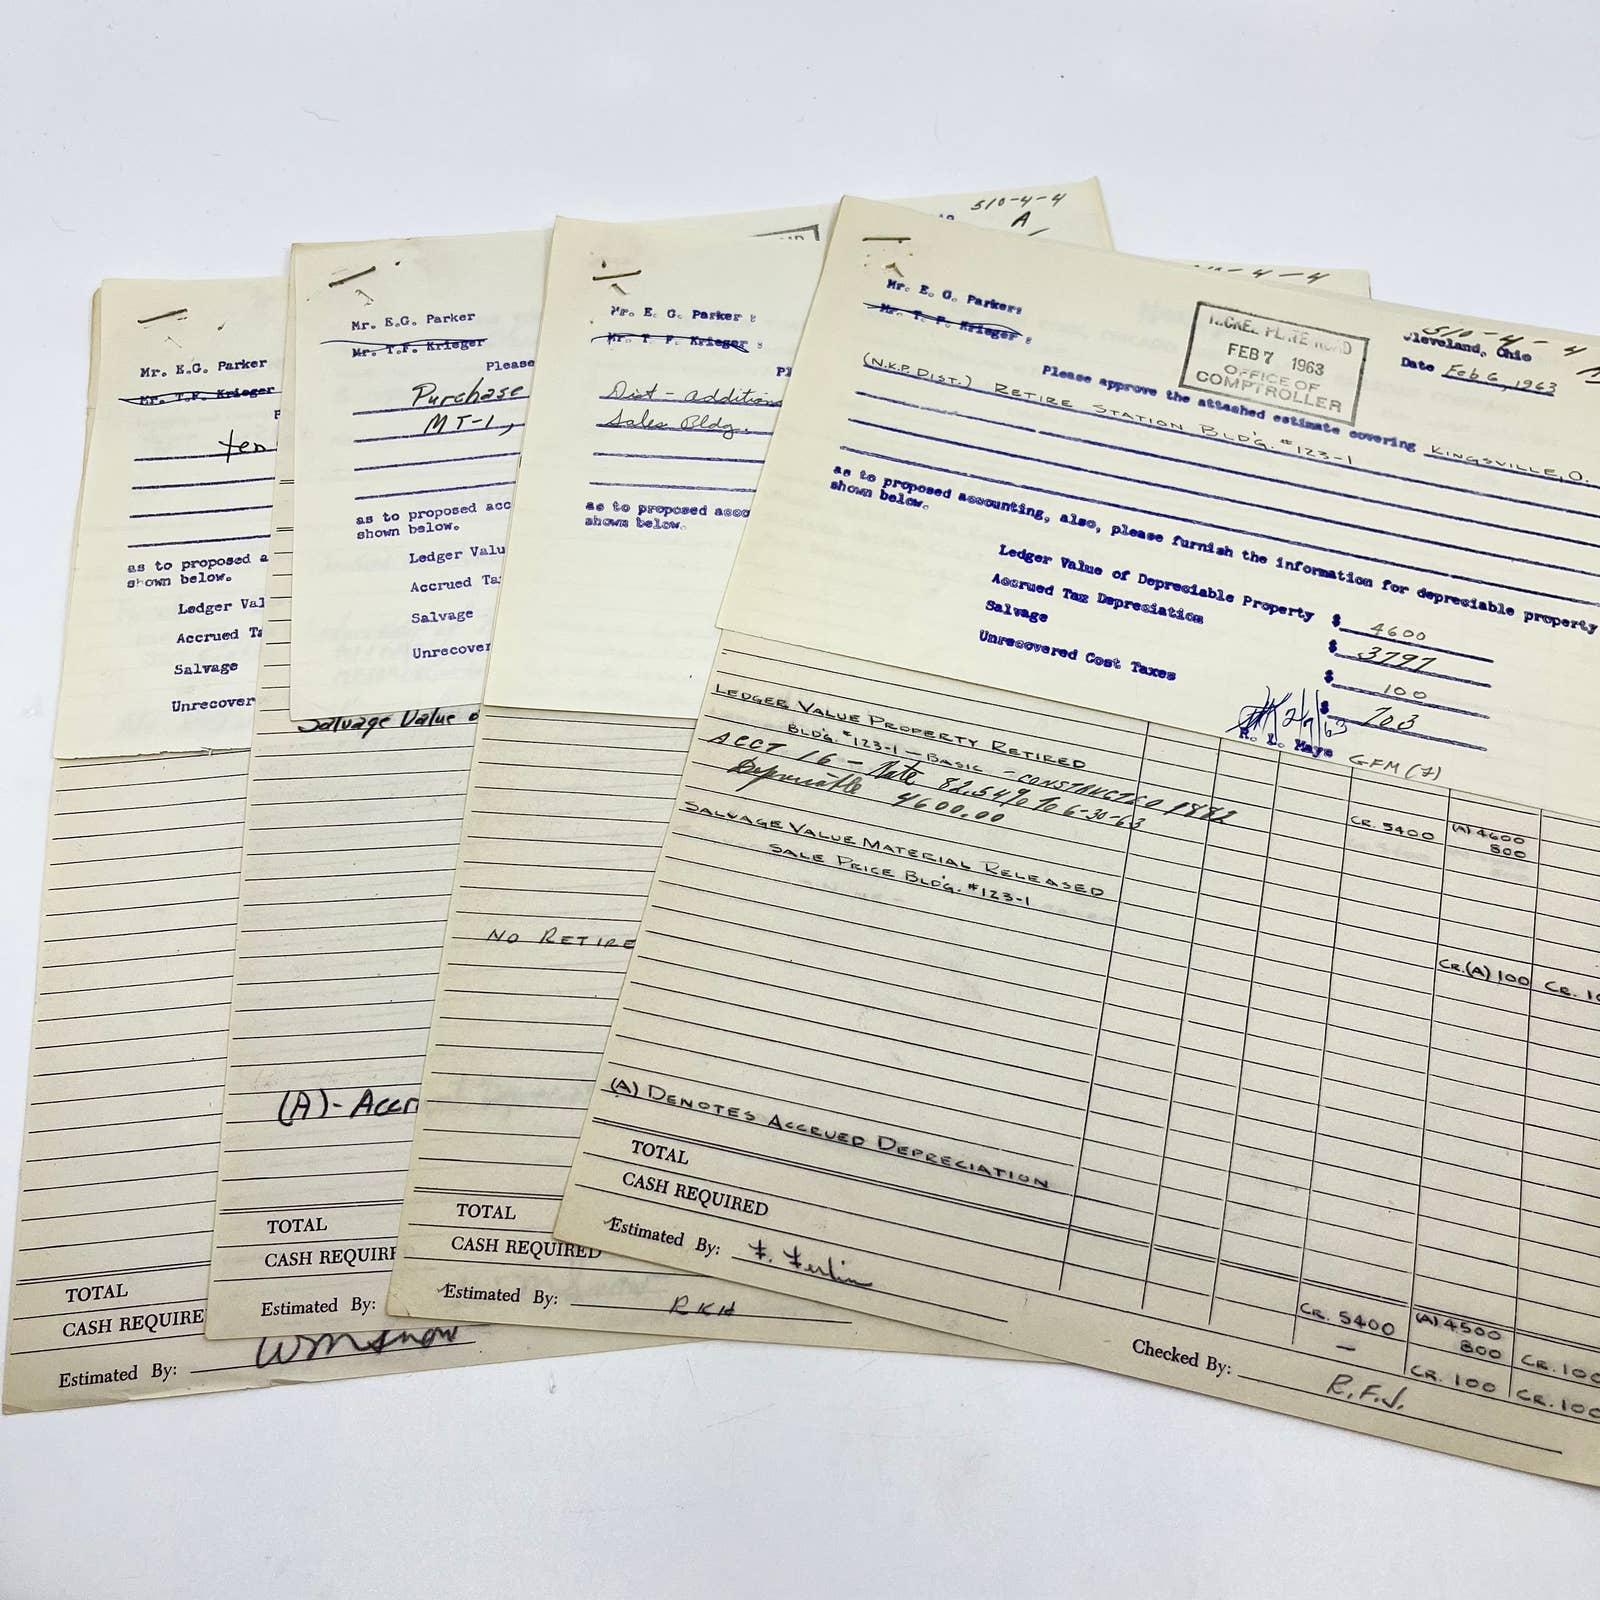 Mr. E.G. Parker
Mr. T.F. Krieger
as to proposed a
shown below.
Ledger Val
Accrued Ta
Salvage
Unrecover
TOTAL
CASH REQUIRE
Estimated By:
Mr. E.G. Parker
Mr. T.F. Krieger
Please
Purchase
MT-1,
as to proposed acc
shown below.
Ledger Valu
Accrued Ta
Salvage
Unrecover
Salvage Value o
(A)-Accr
TOTAL
CASH REQUIRE
Estimated By:
510-4-4
A
Mr. E. G. Parker :
Mr. T. F. Krieger :
Pl
Dist - addition
Sales Bldg.
as to proposed acco
shown below.
NO RETIRE
TOTAL
CASH REQUIRED
Estimated By: RKH
510-4-4
Cleveland, Ohio
Date Feb 6, 1963
Mr. E. G. Parker:
Mr. T. F. Krieger :
NICKEL PLATE ROAD
FEB 7 1963
OFFICE OF
COMPTROLLER
Please approve the attached estimate covering KINGSVILLE, O.
(N.K.P. DIST.) RETIRE STATION BLD'G. #123-1
as to proposed accounting, also, please furnish the information for depreciable property
shown below.
Ledger Value of Depreciable Property $ 4600
Accrued Tax Depreciation $ 3797
Salvage $ 100
Unrecovered Cost Taxes $ 703
2/7/63
R. L. Mays GFM (7)
LEDGER VALUE PROPERTY RETIRED
BLD'G. #123-1 - BASIC - CONSTRUCTED 1882 CR. 5400 (A) 4600
800
ACCT 16 - Rate 82.54% To 6-30-63
Depreciable 4600.00
SALVAGE VALUE MATERIAL RELEASED
SALE PRICE BLD'G. #123-1 CR.(A) 100 CR. 10
(A) DENOTES ACCRUED DEPRECIATION
TOTAL CR. 5400 (A) 4500
800 CR. 100
CASH REQUIRED — CR. 100 CR. 100
Estimated By: F. Ferlin Checked By: R.F.J.